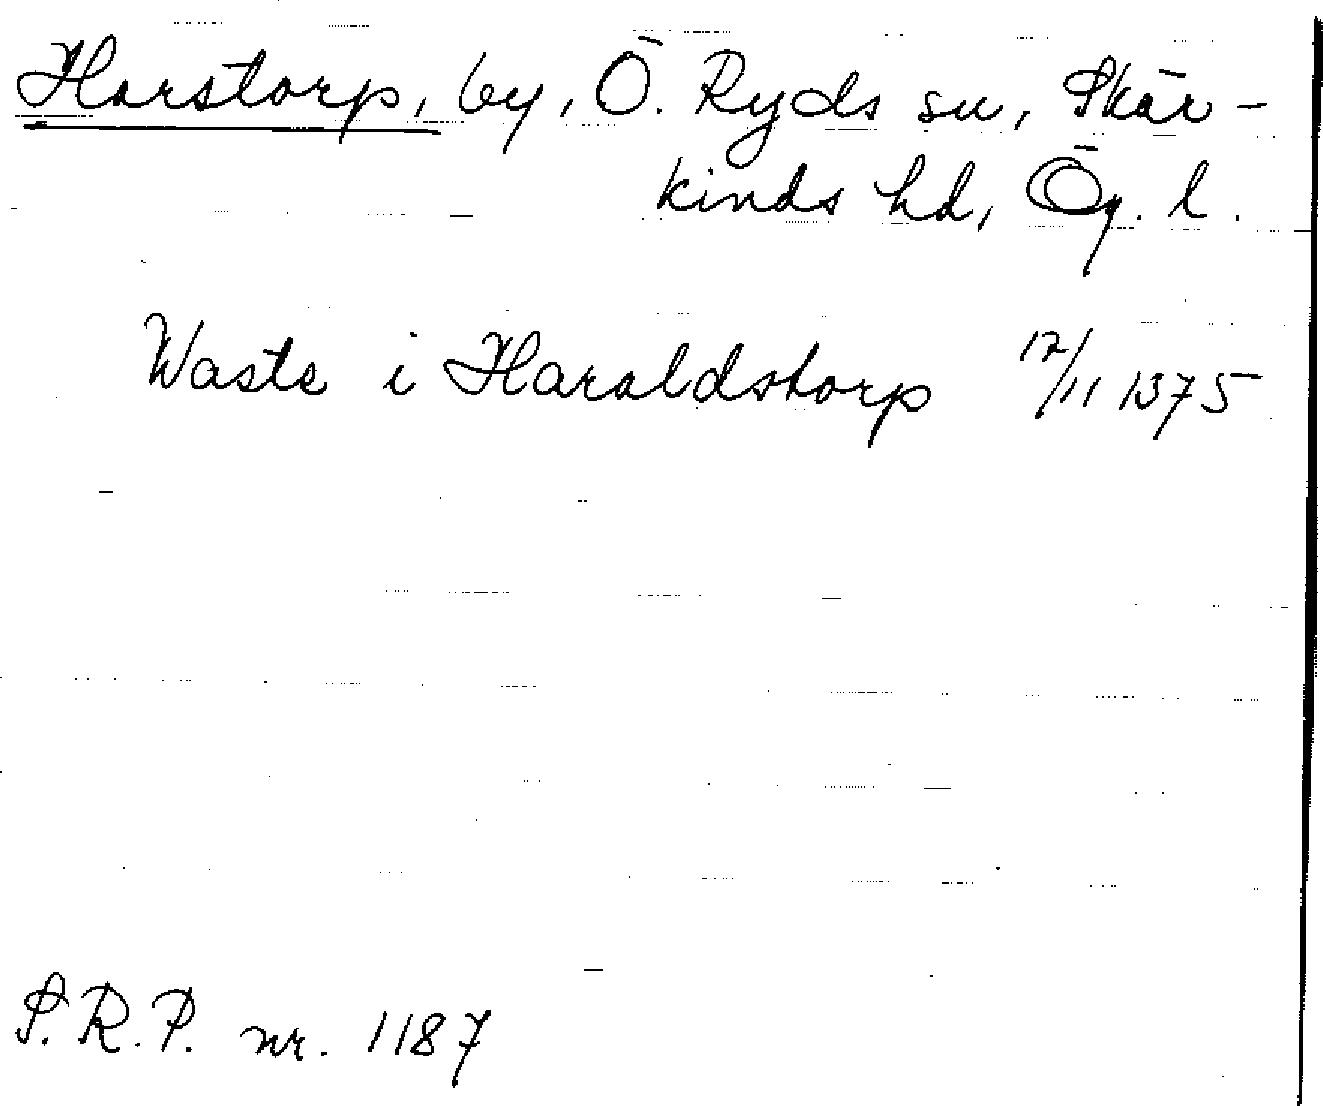 Harstorp, by, Ö. Ryds sn, Skär-
kinds hd, Ög. l.
Waste i Haraldstorp 12/11 1375
S.R.P. nr. 1187